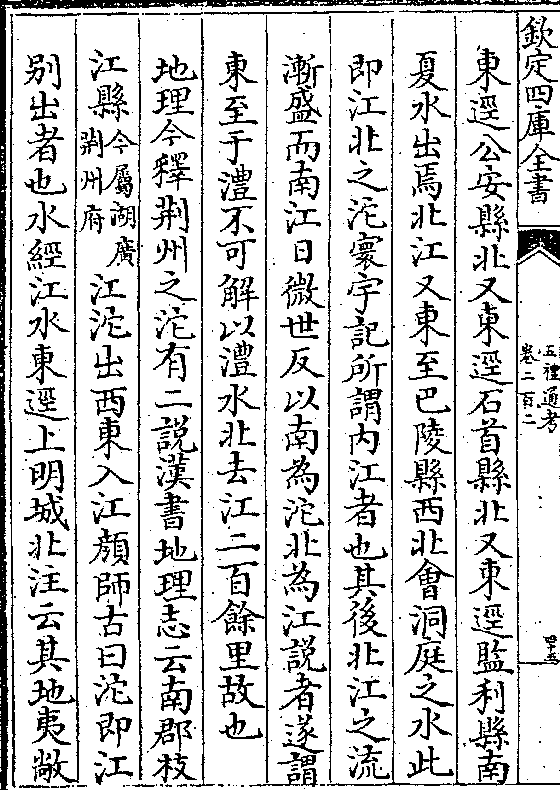 欽定四庫全書
五禮通考
卷二百二
四十五
東逕公安縣北又東逕石首縣北又東逕監利縣南
夏水出焉北江又東至巴陵縣西北會洞庭之水此
即江北之沱寰宇記所謂内江者也其後北江之流
漸盛而南江日微世反以南為沱北為江説者遂謂
東至于澧不可解以澧水北去江二百餘里故也
地理今釋荆州之沱有二説漢書地理志云南郡枝
江縣今屬湖廣荆州府江沱出西東入江顔師古曰沱即江
别出者也水經江水東逕上明城北注云其地夷敞